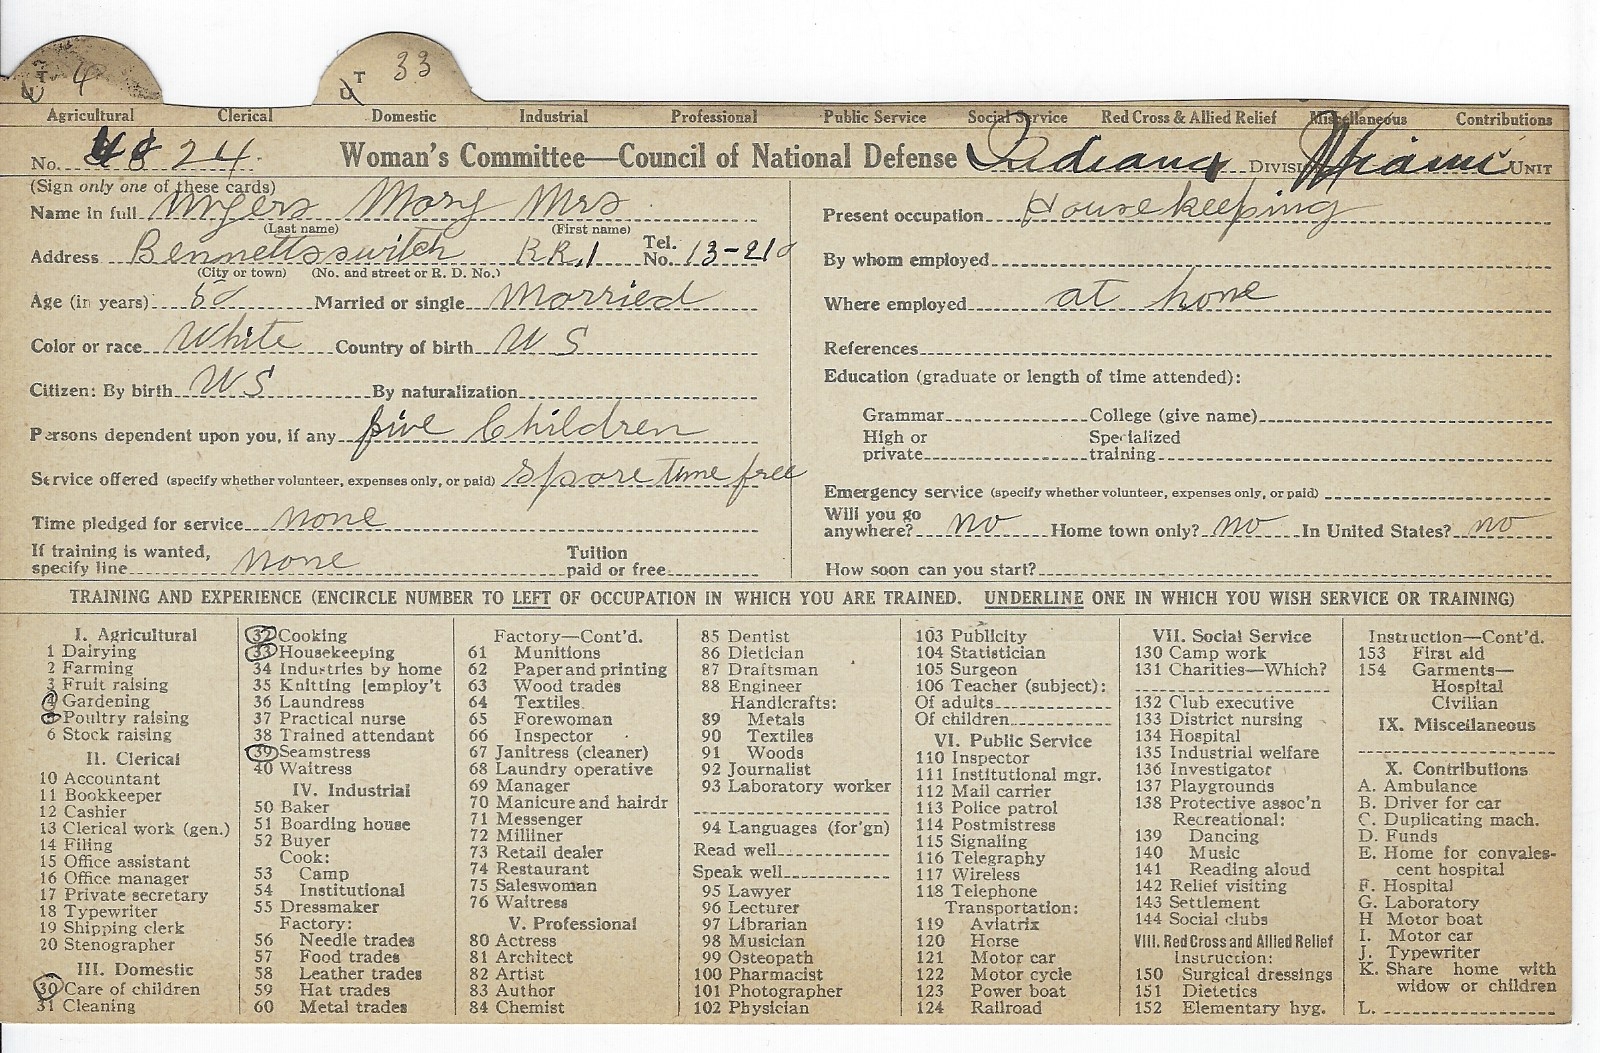 T 4 T 33
Agricultural Clerical Domestic Industrial Professional Public Service Social Service Red Cross & Allied Relief Miscellaneous Contributions
No. 24 Woman's Committee—Council of National Defense Indiana DIVISI Miami UNIT
(Sign only one of these cards)
Name in full Myers Mary Mrs
(Last name) (First name)
Address Bennettsswitch R.R.1 Tel. No. 13-21
(City or town) (No. and street or R. D. No.)
Age (in years) Married or single Married
Color or race White Country of birth U S
Citizen: By birth U S By naturalization
Persons dependent upon you, if any five Children
Service offered (specify whether volunteer, expenses only, or paid) spare time free
Time pledged for service none
If training is wanted, specify line none Tuition paid or free
Present occupation Housekeeping
By whom employed
Where employed at home
References
Education (graduate or length of time attended):
Grammar College (give name)
High or private Specialized training
Emergency service (specify whether volunteer, expenses only, or paid)
Will you go anywhere? no Home town only? no In United States? no
How soon can you start?
TRAINING AND EXPERIENCE (ENCIRCLE NUMBER TO LEFT OF OCCUPATION IN WHICH YOU ARE TRAINED. UNDERLINE ONE IN WHICH YOU WISH SERVICE OR TRAINING)
I. Agricultural
1 Dairying
2 Farming
3 Fruit raising
4 Gardening
5 Poultry raising
6 Stock raising
II. Clerical
10 Accountant
11 Bookkeeper
12 Cashier
13 Clerical work (gen.)
14 Filing
15 Office assistant
16 Office manager
17 Private secretary
18 Typewriter
19 Shipping clerk
20 Stenographer
III. Domestic
30 Care of children
31 Cleaning
32 Cooking
33 Housekeeping
34 Industries by home
35 Knitting [employ't
36 Laundress
37 Practical nurse
38 Trained attendant
39 Seamstress
40 Waitress
IV. Industrial
50 Baker
51 Boarding house
52 Buyer
Cook:
53 Camp
54 Institutional
55 Dressmaker
Factory:
56 Needle trades
57 Food trades
58 Leather trades
59 Hat trades
60 Metal trades
Factory—Cont'd.
61 Munitions
62 Paper and printing
63 Wood trades
64 Textiles
65 Forewoman
66 Inspector
67 Janitress (cleaner)
68 Laundry operative
69 Manager
70 Manicure and hairdr
71 Messenger
72 Milliner
73 Retail dealer
74 Restaurant
75 Saleswoman
76 Waitress
V. Professional
80 Actress
81 Architect
82 Artist
83 Author
84 Chemist
85 Dentist
86 Dietician
87 Draftsman
88 Engineer
Handicrafts:
89 Metals
90 Textiles
91 Woods
92 Journalist
93 Laboratory worker
94 Languages (for'gn)
Read well
Speak well
95 Lawyer
96 Lecturer
97 Librarian
98 Musician
99 Osteopath
100 Pharmacist
101 Photographer
102 Physician
103 Publicity
104 Statistician
105 Surgeon
106 Teacher (subject):
Of adults
Of children
VI. Public Service
110 Inspector
111 Institutional mgr.
112 Mail carrier
113 Police patrol
114 Postmistress
115 Signaling
116 Telegraphy
117 Wireless
118 Telephone
Transportation:
119 Aviatrix
120 Horse
121 Motor car
122 Motor cycle
123 Power boat
124 Railroad
VII. Social Service
130 Camp work
131 Charities—Which?
132 Club executive
133 District nursing
134 Hospital
135 Industrial welfare
136 Investigator
137 Playgrounds
138 Protective assoc'n
Recreational:
139 Dancing
140 Music
141 Reading aloud
142 Relief visiting
143 Settlement
144 Social clubs
VIII. Red Cross and Allied Relief
Instruction:
150 Surgical dressings
151 Dietetics
152 Elementary hyg.
Instruction—Cont'd.
153 First aid
154 Garments—
Hospital
Civilian
IX. Miscellaneous
X. Contributions
A. Ambulance
B. Driver for car
C. Duplicating mach.
D. Funds
E. Home for convales-
cent hospital
F. Hospital
G. Laboratory
H Motor boat
I. Motor car
J. Typewriter
K. Share home with
widow or children
L.